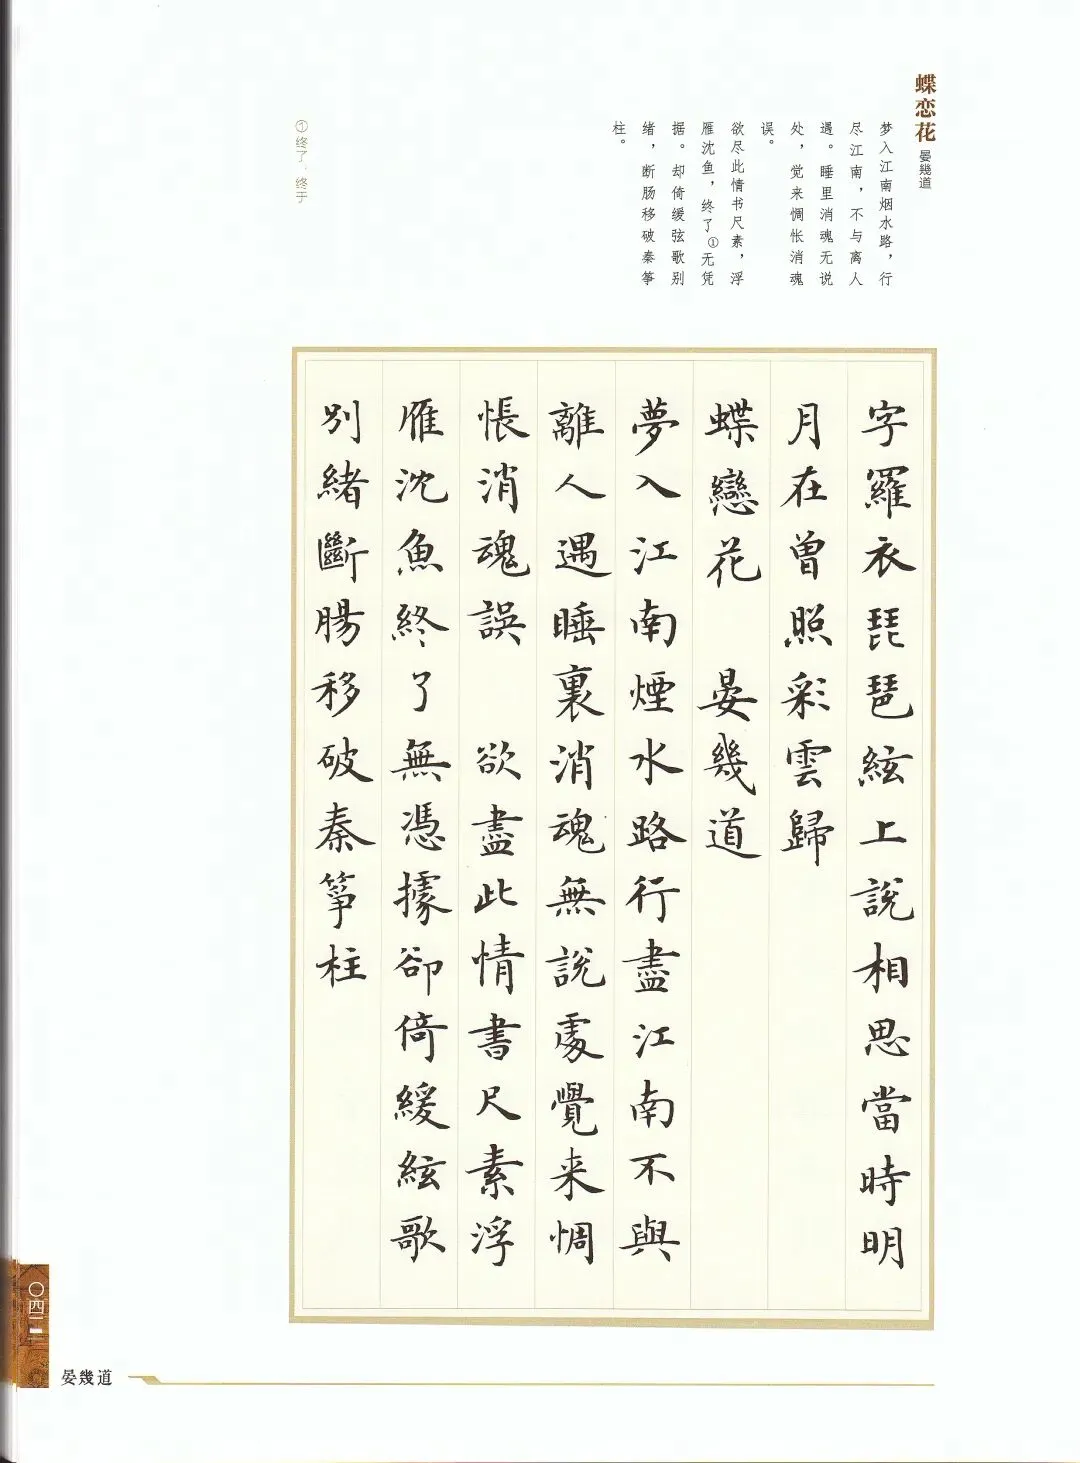 蝶恋花 晏幾道
梦入江南烟水路，行
尽江南，不与离人
遇。睡里消魂无说
处，觉来惆怅消魂
误。
欲尽此情书尺素，浮
雁沈鱼，终了①无凭
据。却倚缓弦歌别
绪，断肠移破秦筝
柱。
①终了，终于
字羅衣琵琶絃上說相思當時明
月在曾照彩雲歸
蝶戀花 晏幾道
夢入江南煙水路行盡江南不與
離人遇睡裏消魂無說處覺来惆
悵消魂誤 欲盡此情書尺素浮
雁沈魚終了無憑據卻倚緩絃歌
別緒斷腸移破秦箏柱
〇四二
晏幾道